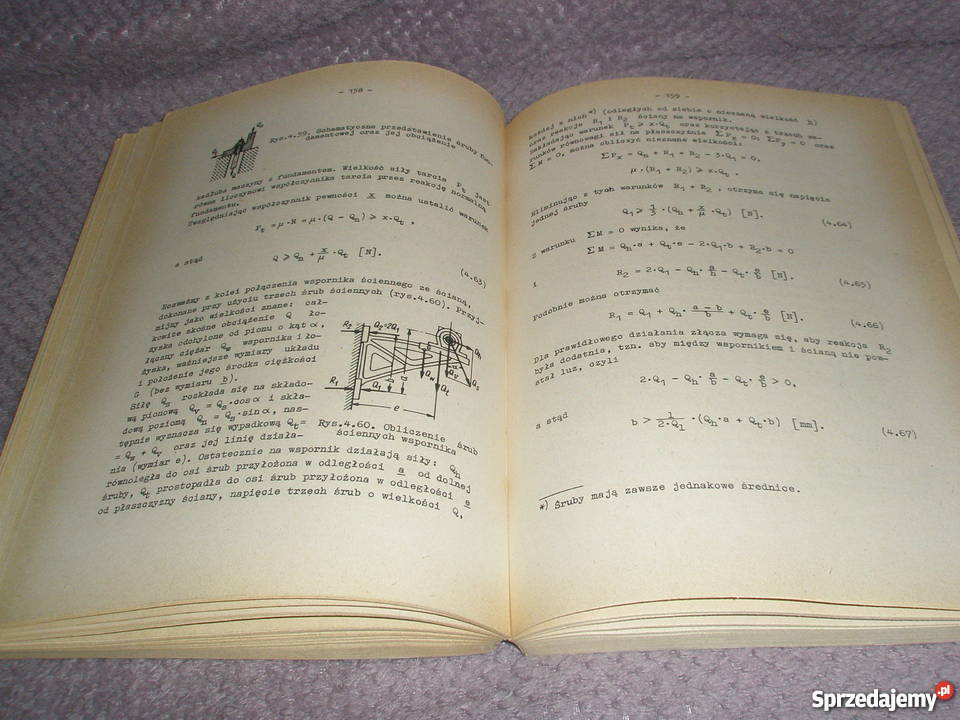 - 158 -
Rys.4.59. Schematyczne przedstawienie śruby fun-
damentowej oraz jej obciążenie
kadłuba maszyny z fundamentem. Wielkość siły tarcia Pt jest
równa iloczynowi współczynnika tarcia przez reakcję normalną
fundamentu.
Uwzględniając współczynnik pewności x można ustalić warunek
Pt = μ·R = μ·(Q - Qn) ⩾ x·Qt ,
a stąd
Q ⩾ Qn + x/μ·Qt [N].
(4.63)
Rozważmy z kolei połączenia wspornika ściennego ze ścianą,
dokonane przy użyciu trzech śrub ściennych (rys.4.60). Przyj-
mijmy jako wielkości znane: cał-
kowite skośne obciążenie Q ło-
żyska odchylone od pionu o kąt α,
łączny ciężar Qw wspornika i ło-
żyska, ważniejsze wymiary układu
i położenie jego środka ciężkości
G (bez wymiaru b).
Siłę Qs rozkłada się na składo-
wą pionową Qv = Qs·cosα i skła-
dową poziomą Qh = Qs·sinα, nas-
tępnie wyznacza się wypadkową Qt=
= Qw + Qv oraz jej linię działa-
nia (wymiar e). Ostatecznie na wspornik działają siły: Qh
równoległa do osi śrub przyłożona w odległości a od dolnej
śruby, Qt prostopadła do osi śrub przyłożona w odległości e
od płaszczyzny ściany, napięcie trzech śrub o wielkości Q,
R2
Q2=2Q1
Qh
Qw
Qv
Qs
R1
Q1
Qt
e
Rys.4.60. Obliczenie śrub
ściennych wspornika
- 159 -
każdej z nich *) (odległych od siebie o nieznaną wielkość b)
oraz reakcje R1 i R2 ściany na wspornik.
Zakładając warunek Pt ⩾ x·Qt oraz korzystając z trzech wa-
runków równowagi sił na płaszczyźnie ΣPx = 0; ΣPy = 0 oraz
ΣM = 0, można obliczyć nieznane wielkości:
ΣPx = Qh + R1 + R2 - 3·Q1 = 0,
μ·(R1 + R2) ⩾ x·Qt .
Eliminując z tych warunków R1 + R2 , otrzyma się napięcie
jednej śruby
Q1 ⩾ 1/3·(Qh + x/μ·Qt) [N].
(4.64)
Z warunku ΣM = 0 wynika, że
ΣM = Qh·a + Qt·e - 2·Q1·b + R2·b = 0
i
R2 = 2·Q1 - Qh·a/b - Qt·e/b [N].
(4.65)
Podobnie można otrzymać
R1 = Q1 + Qh·a - b/b + Qt·e/b [N].
(4.66)
Dla prawidłowego działania złącza wymaga się, aby reakcja R2
była dodatnia, tzn. aby między wspornikiem i ścianą nie pow-
stał luz, czyli
2·Q1 - Qh·a/b - Qt·e/b > 0,
a stąd
b > 1/2·Q1·(Qh·a + Qt·b) [mm].
(4.67)
*) Śruby mają zawsze jednakowe średnice.
Sprzedajemy.pl